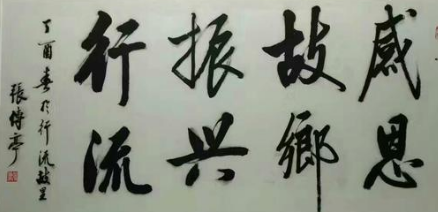 感恩
故鄉
振兴
行流
丁酉春於行流故里
張传亭